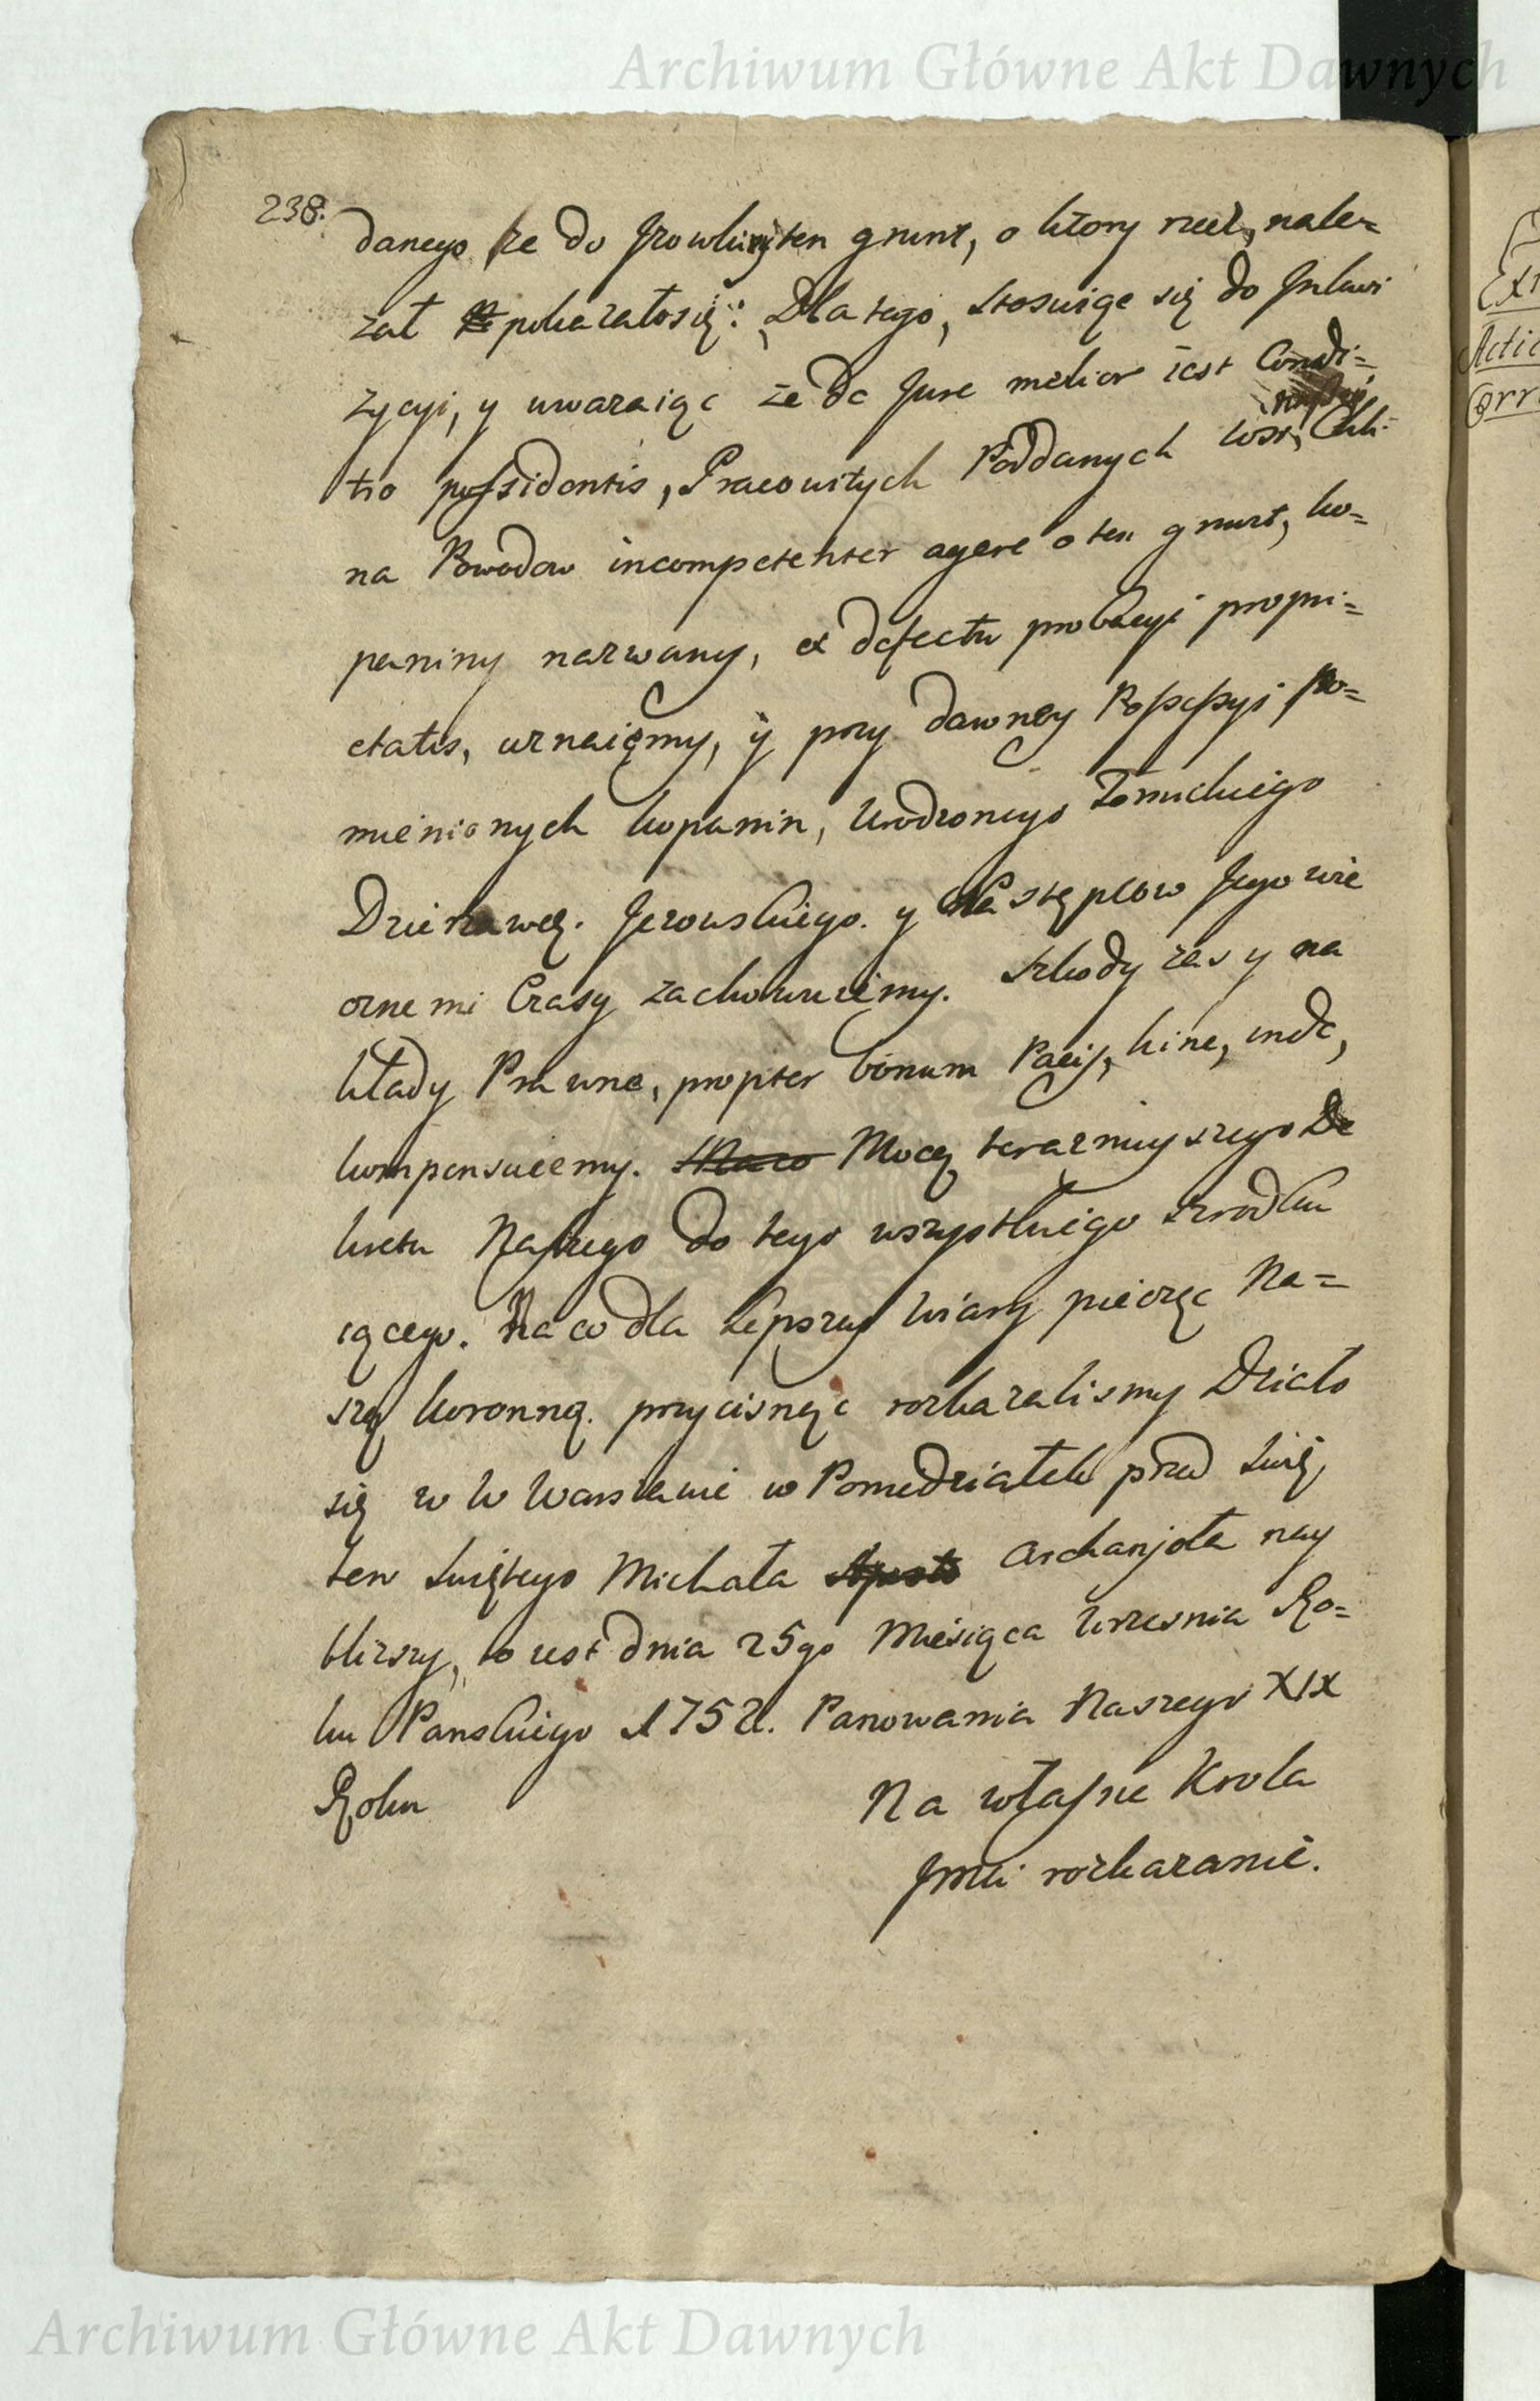 Archiwum Główne Akt Dawnych
238.
danego że do Jzowkiey ten grunt, o ktory rzecz, nale=
żał pokazało się: Dla tego, stosuiąc się do Inkwi
zycyi, y uwazaiąc że de Jure melior iest Condi=
tio possidentis, Pracowitych Poddanych wsi,
na Powodow incompetenter agere o ten grunt, ko=
paniny nazwany, ex defectu probacyi propri=
etatis, uznaięmy, ÿ przy dawney Possessyi po=
mienionych kopanin, Urodzonego Łomickiego
Dzierzawcę. Jezowskiego. y Następcow Jego wie
cznemi Czasy zachowuiemy. Szkody zas y na
kłady Prawne, propter bonum Pacis, hinc, inde,
kompensuiemy. Mocą teraznieyszego De
kretu Naszego do tego wszystkiego srzodku
iącego. Na co dla Lepszey wiary pieczęc Na=
szę koronną. przycisnąc rozkazalismy Działo
się w W Warszawie w Poniedziałek przed Swię,
tem Swiętego Michała Archanjoła nay
blizszy, to iest dnia 25go Miesiąca Wrzesnia Ro=
ku Panskiego 1752. Panowania Naszego XIX
Roku
Na własne Krola
Jmci rozkazanie.
Acti
Corr
Archiwum Główne Akt Dawnych